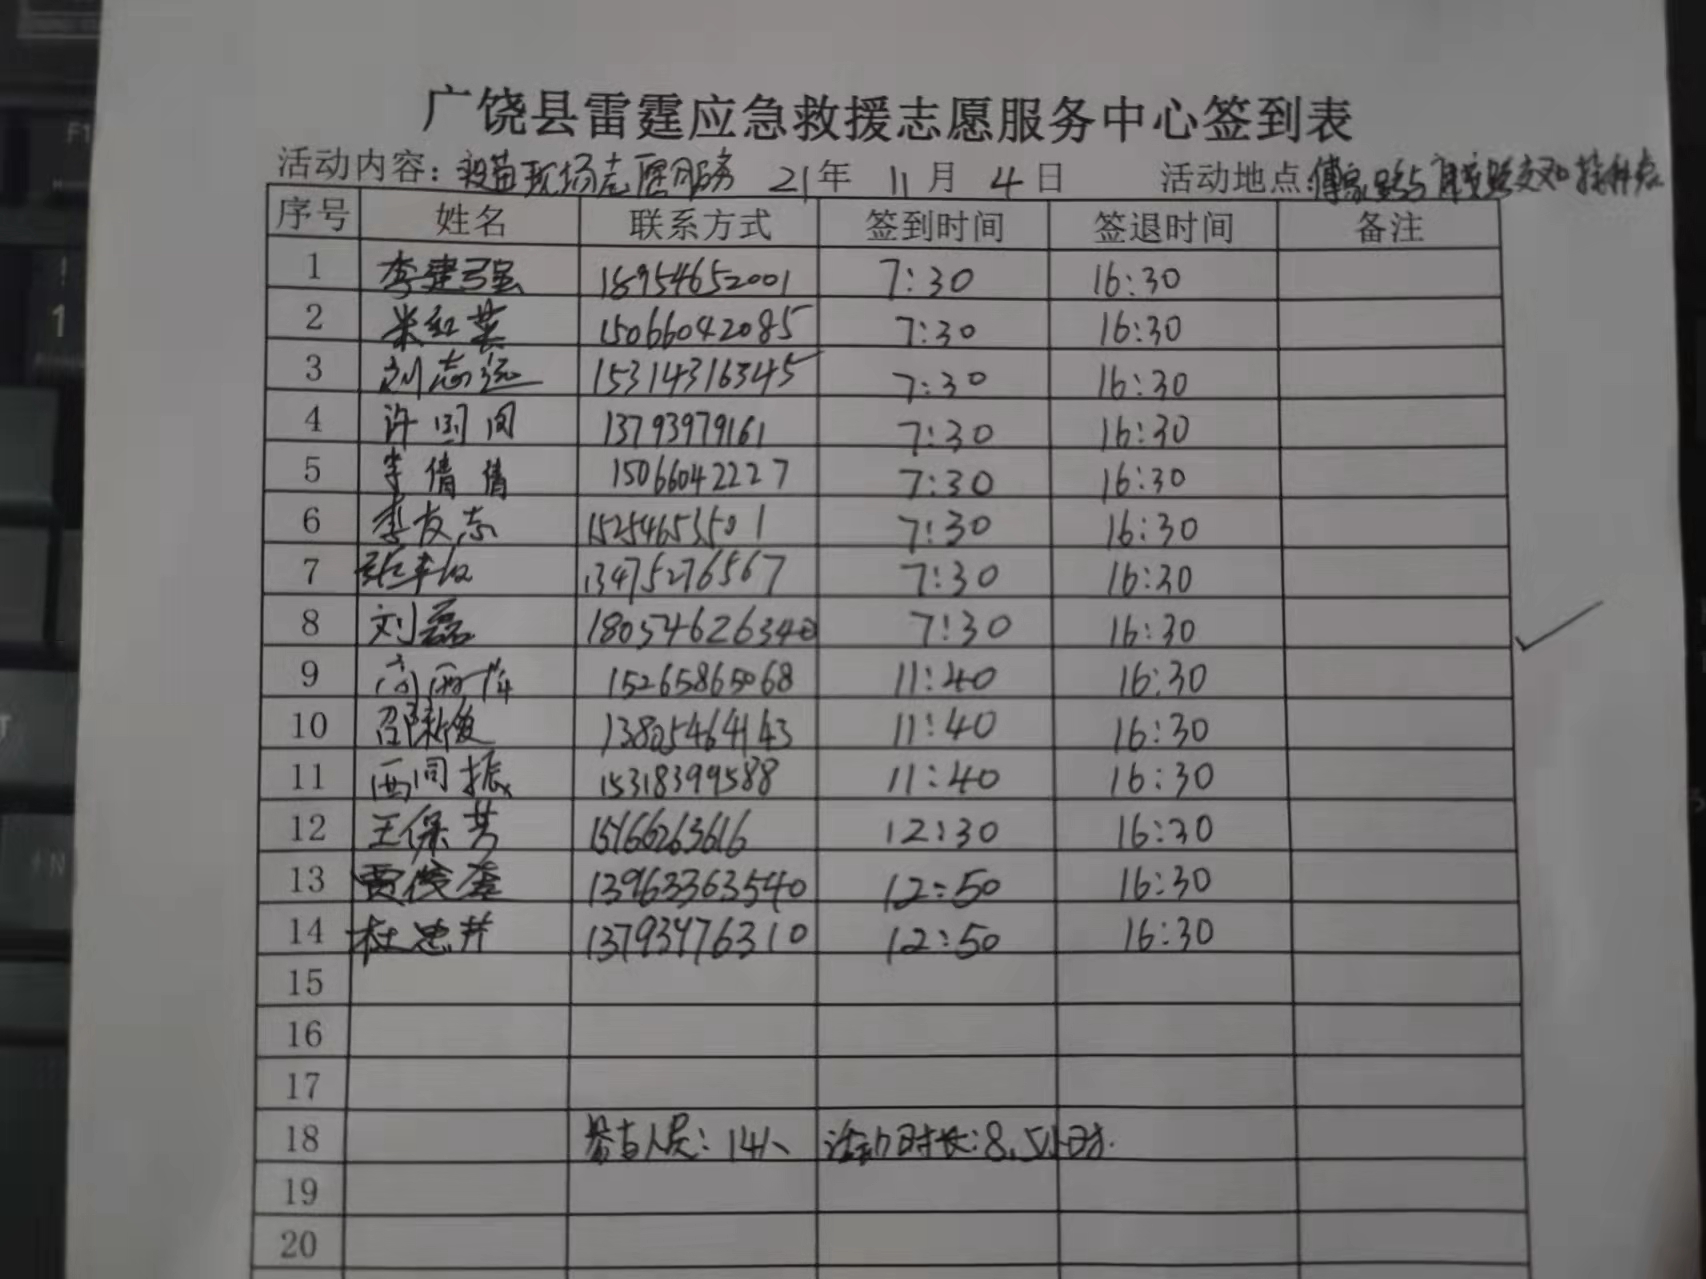 广饶县雷霆应急救援志愿服务中心签到表
活动内容：疫苗现场志愿服务 21年 11月 4日 活动地点：傅家路与 路交叉 接种点
序号 姓名 联系方式 签到时间 签退时间 备注
1 李建强 18954652001 7:30 16:30
2 米红英 15066042085 7:30 16:30
3 刘志远 15314316345 7:30 16:30
4 许国因 13793979161 7:30 16:30
5 李倩倩 15066042227 7:30 16:30
6 李友志 15254653501 7:30 16:30
7 张 13475276567 7:30 16:30
8 刘磊 18054626340 7:30 16:30
9 15265865068 11:40 16:30
10 邵新俊 13805464143 11:40 16:30
11 西同振 15318399588 11:40 16:30
12 王保芳 15166263616 12:30 16:30
13 贾俊奎 13963363540 12:50 16:30
14 杜忠井 13793476310 12:50 16:30
15
16
17
18 参与人员：14人 活动时长：8.5小时.
19
20